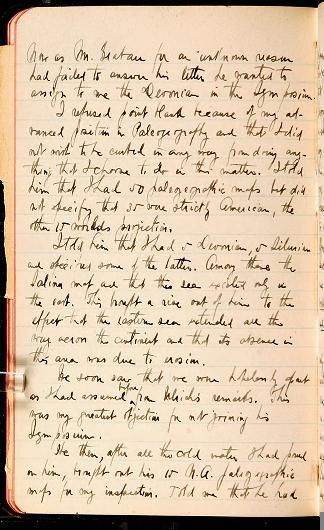 Now as Mr. for an unknown reason
had failed to answer his letter he wanted to
assign to me the Devonian in the symposium.
I refused point blank because of my ad-
vanced position in Paleogeography and that I did
not wish to be curbed in any way from doing any-
thing that I choose to do in this matter. I told
him that I had 50 paleogeographic maps but did
not specify that 35 were strictly American, the
other 15 worlds projection.
I told him that I had 5 Devonian, 5 Silurian
and described some of the latter. Among them the
Salina map and that this sea existed only in
the east. This brought a rise out of him to the
effect that the eastern sea extended all the
way across the continent and that its absence in
this area was due to erosion.
We soon saw that we were hopelessly apart
as I had assumed before from remarks. This
was my greatest objection for not joining his
Symposium.
He then, after all the cold water I had poured
on him, brought out his 15 N.A. paleogeographic
maps for my inspection. Told me that he had